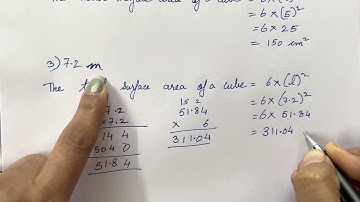 surface area of a cube = 6 × (5)²
= 6 × 25
= 150 cm²
3) 7.2 m
The surface area of a cube = 6 × (l)²
= 6 × (7.2)²
= 6 × 51.84
= 311.04
7.2
×7.2
144
5040
51.84
15 2
51.84
× 6
311.04